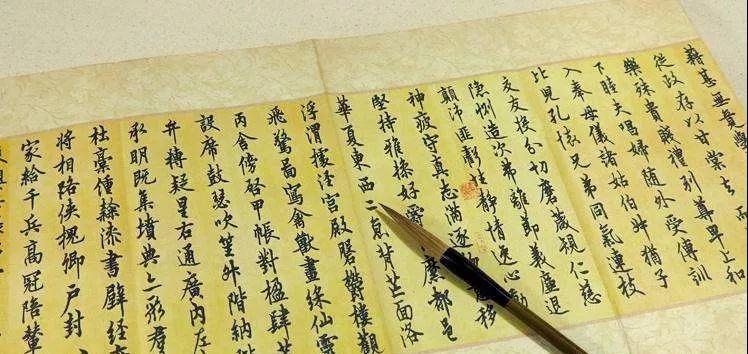 藉甚無竟學
從政存以甘棠去而
樂殊貴賤禮別尊卑上和
下睦夫唱婦隨外受傅訓
入奉母儀諸姑伯叔猶子
比兒孔懷兄弟同氣連枝
交友投分切磨箴規仁慈
隱惻造次弗離節義廉退
顛沛匪虧性靜情逸心動
神疲守真志滿逐物意移
堅持雅操好爵縻都邑
華夏東西二京背芒面洛
浮渭據涇宮殿磐鬱樓觀
飛驚圖寫禽獸畫綵仙靈
丙舍傍啓甲帳對楹肆筵
設席鼓瑟吹笙升階納陛
弁轉疑星右通廣內左
承明既集墳典亦聚群
杜稾鍾隸漆書壁經
將相路俠槐卿戶封
家給千兵高冠陪輦